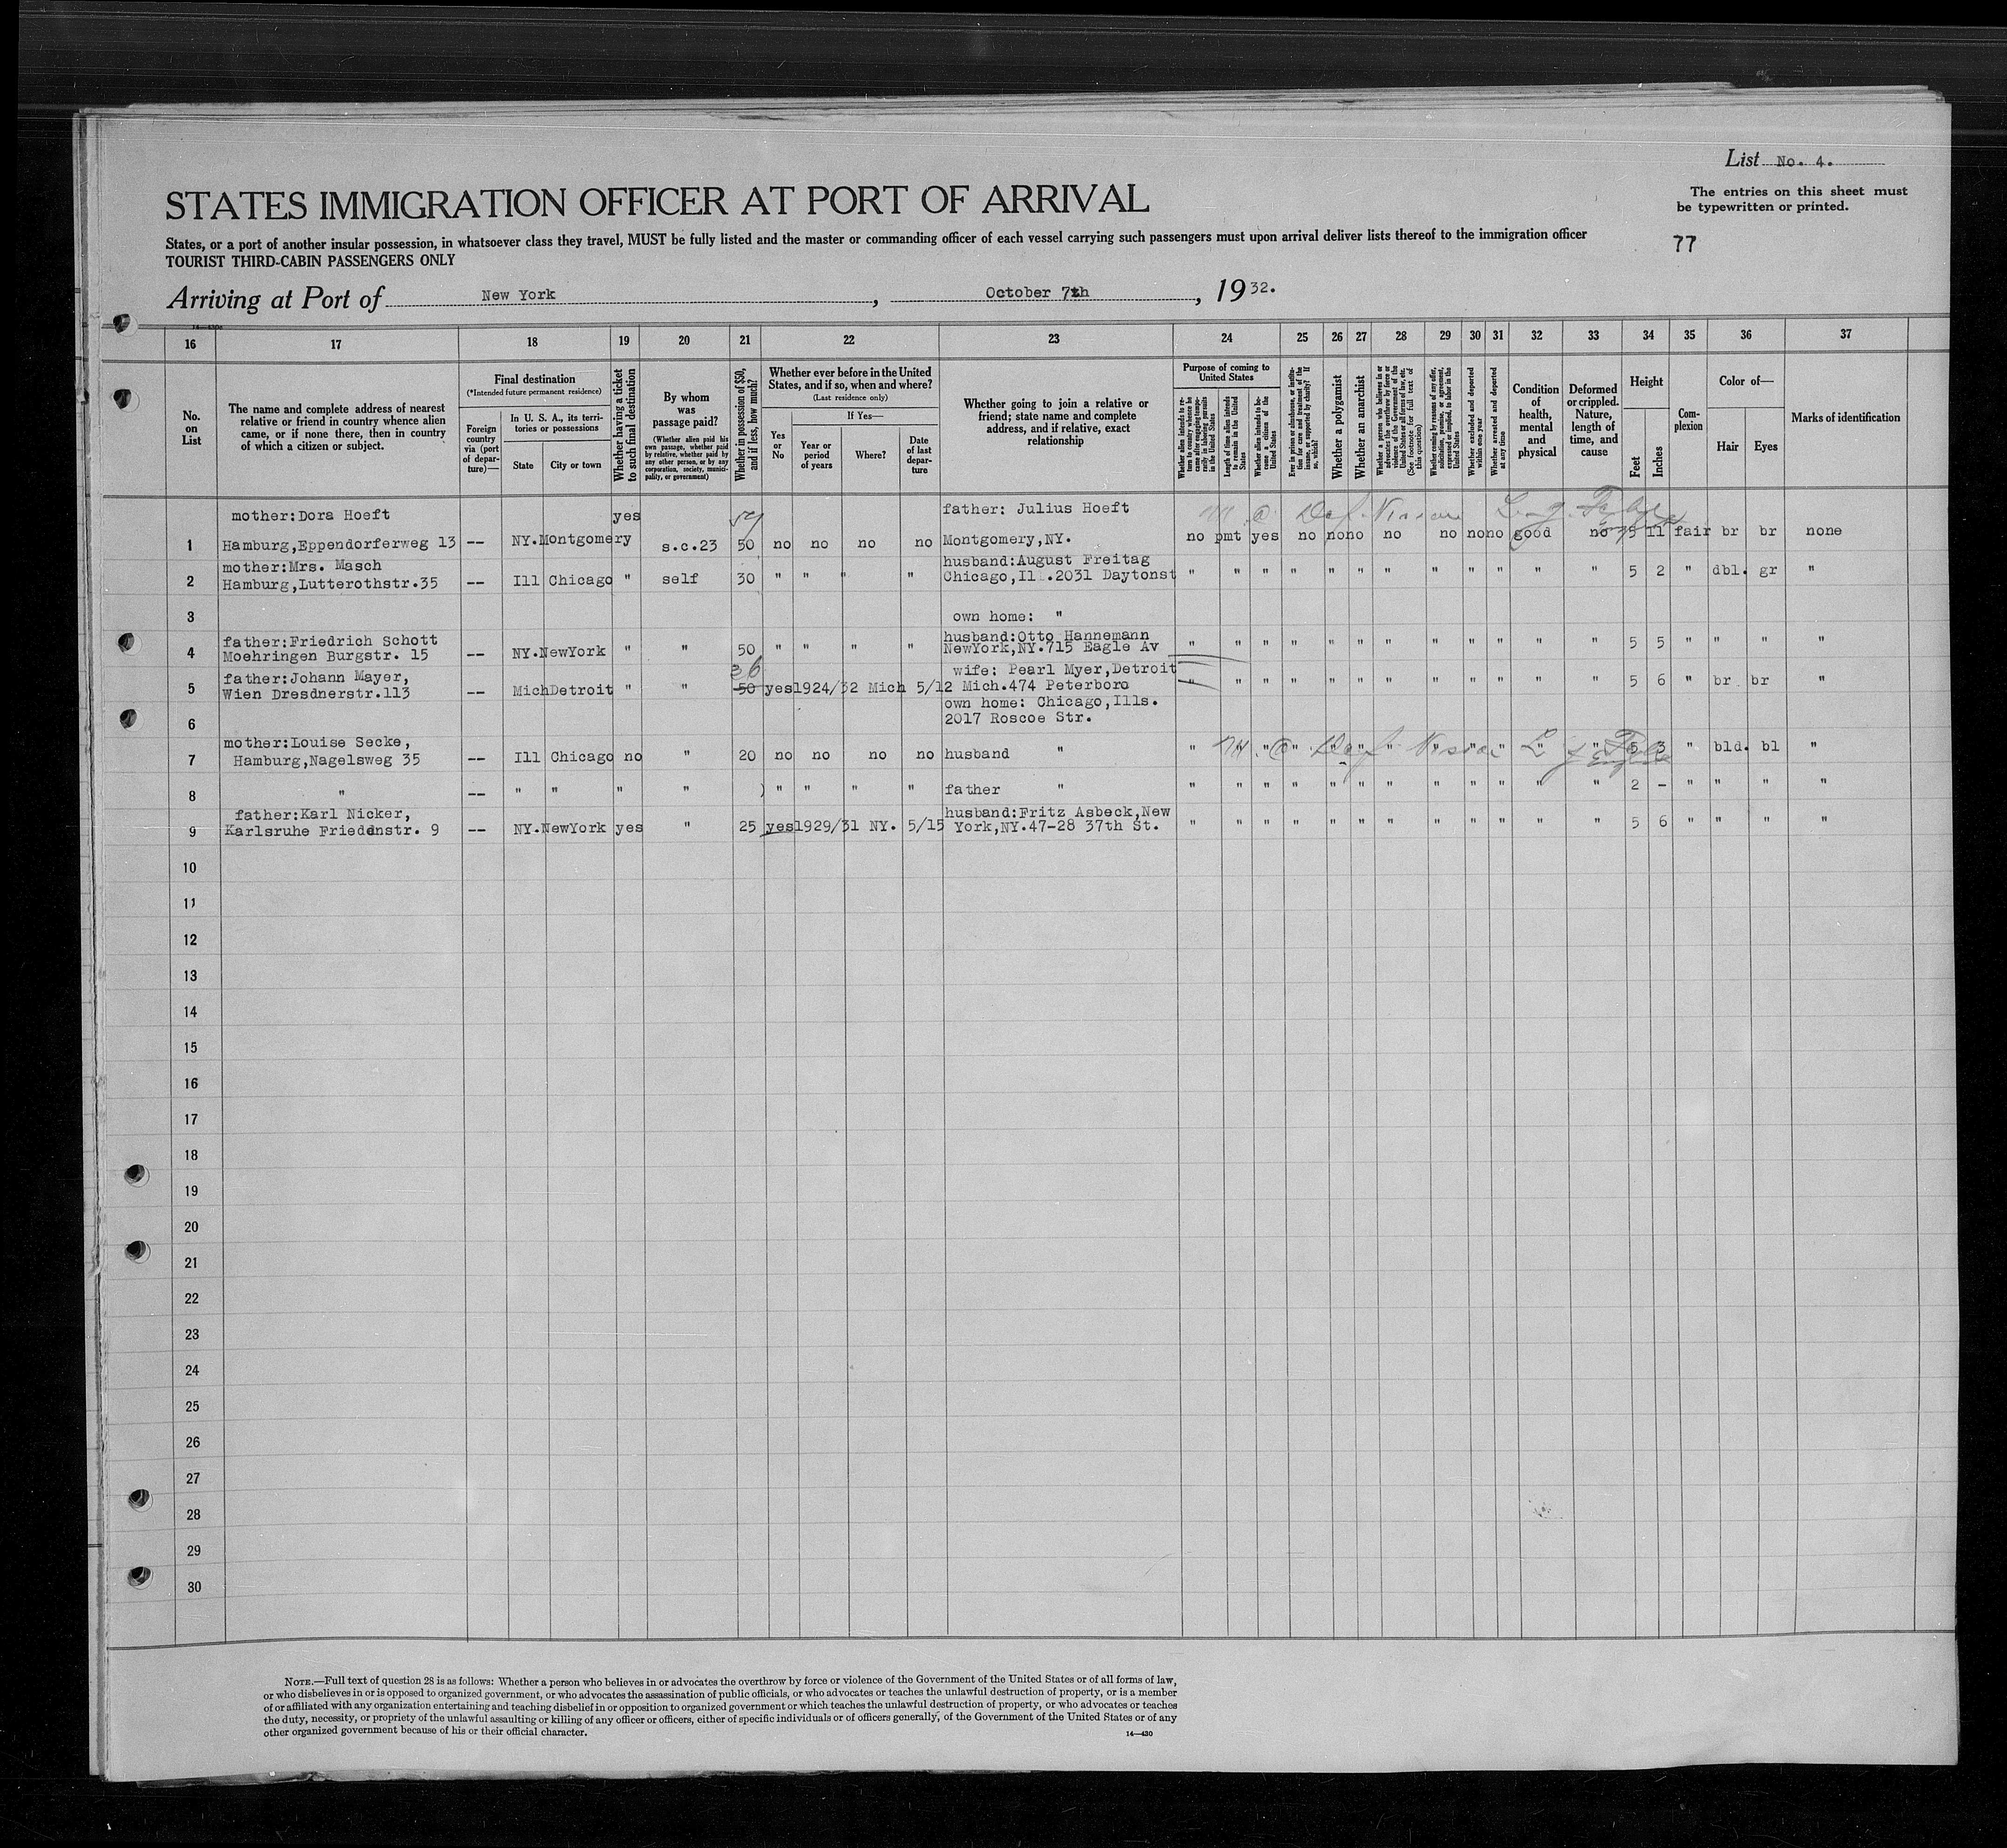 List No. 4.
The entries on this sheet must
be typewritten or printed.
STATES IMMIGRATION OFFICER AT PORT OF ARRIVAL
States, or a port of another insular possession, in whatsoever class they travel, MUST be fully listed and the master or commanding officer of each vessel carrying such passengers must upon arrival deliver lists thereof to the immigration officer
TOURIST THIRD-CABIN PASSENGERS ONLY
77
Arriving at Port of New York, October 7th, 1932.
16 17 18 19 20 21 22 23 24 25 26 27 28 29 30 31 32 33 34 35 36 37
No.
on
List
The name and complete address of nearest
relative or friend in country whence alien
came, or if none there, then in country
of which a citizen or subject.
Final destination
(*Intended future permanent residence)
Foreign
country
via (port
of depar-
ture)—
In U. S. A., its terri-
tories or possessions
State
City or town
Whether having a ticket
to such final destination
By whom
was
passage paid?
(Whether alien paid his
own passage, whether paid
by relative, whether paid by
any other person, or by any
corporation, society, munici-
pality, or government)
Whether in possession of $50,
and if less, how much?
Whether ever before in the United
States, and if so, when and where?
(Last residence only)
Yes
or
No
If Yes—
Year or
period
of years
Where?
Date
of last
depar-
ture
Whether going to join a relative or
friend; state name and complete
address, and if relative, exact
relationship
Purpose of coming to
United States
Whether alien intends to re-
turn to country whence he
came after engaging tempo-
rarily in laboring pursuits
in the United States
Length of time alien intends
to remain in the United
States
Whether alien intends to be-
come a citizen of the
United States
Ever in prison or almshouse, or institu-
tion for care and treatment of the
insane, or supported by charity? If
so, which?
Whether a polygamist
Whether an anarchist
Whether a person who believes in or
advocates the overthrow by force or
violence of the Government of the
United States or all forms of law, etc.
(See footnote for full text of
this question)
Whether coming by reasons of any offer,
solicitation, promise, or agreement,
expressed or implied, to labor in the
United States
Whether excluded and deported
within one year
Whether arrested and deported
at any time
Condition
of
health,
mental
and
physical
Deformed
or crippled.
Nature,
length of
time, and
cause
Height
Feet
Inches
Com-
plexion
Color of—
Hair
Eyes
Marks of identification
mother:Dora Hoeft yes father: Julius Hoeft
1 Hamburg,Eppendorferweg 13 -- NY.Montgomery s.c.23 50 no no no no Montgomery,NY. no pmt yes no no no no no no no good no 5 11 fair br br none
mother:Mrs. Masch husband:August Freitag
2 Hamburg,Lutterothstr.35 -- Ill Chicago " self 30 " " " " Chicago,Ill.2031 Daytonst " " " " " " " " " " " " 5 2 " dbl. gr "
3 own home: "
father:Friedrich Schott husband:Otto Hannemann
4 Moehringen Burgstr. 15 -- NY.NewYork " " 50 " " " " NewYork,NY.715 Eagle Av " " " " " " " " " " " " 5 5 " " " "
father:Johann Mayer, 26 wife: Pearl Myer,Detroit
5 Wien Dresdnerstr.113 -- Mich Detroit " " 50 yes 1924/32 Mich 5/12 Mich.474 Peterboro " " " " " " " " " " " " 5 6 " br br "
own home: Chicago,Ills.
6 2017 Roscoe Str.
mother:Louise Secke,
7 Hamburg,Nagelsweg 35 -- Ill Chicago no " 20 no no no no husband " " " " " " " " " " " " 5 3 " bld. bl "
8 " -- " " " " " " " " father " " " " " " " " " " " " " 2 - " " " "
father:Karl Nicker, husband:Fritz Asbeck,New
9 Karlsruhe Friedenstr. 9 -- NY.NewYork yes " 25 yes 1929/31 NY. 5/15 York,NY.47-28 37th St. " " " " " " " " " " " " 5 6 " " " "
10
11
12
13
14
15
16
17
18
19
20
21
22
23
24
25
26
27
28
29
30
NOTE.—Full text of question 28 is as follows: Whether a person who believes in or advocates the overthrow by force or violence of the Government of the United States or of all forms of law,
or who disbelieves in or is opposed to organized government, or who advocates the assassination of public officials, or who advocates or teaches the unlawful destruction of property, or is a member
of or affiliated with any organization entertaining and teaching disbelief in or opposition to organized government or which teaches the unlawful destruction of property, or who advocates or teaches
the duty, necessity, or propriety of the unlawful assaulting or killing of any officer or officers, either of specific individuals or of officers generally, of the Government of the United States or of any
other organized government because of his or their official character.
14—430